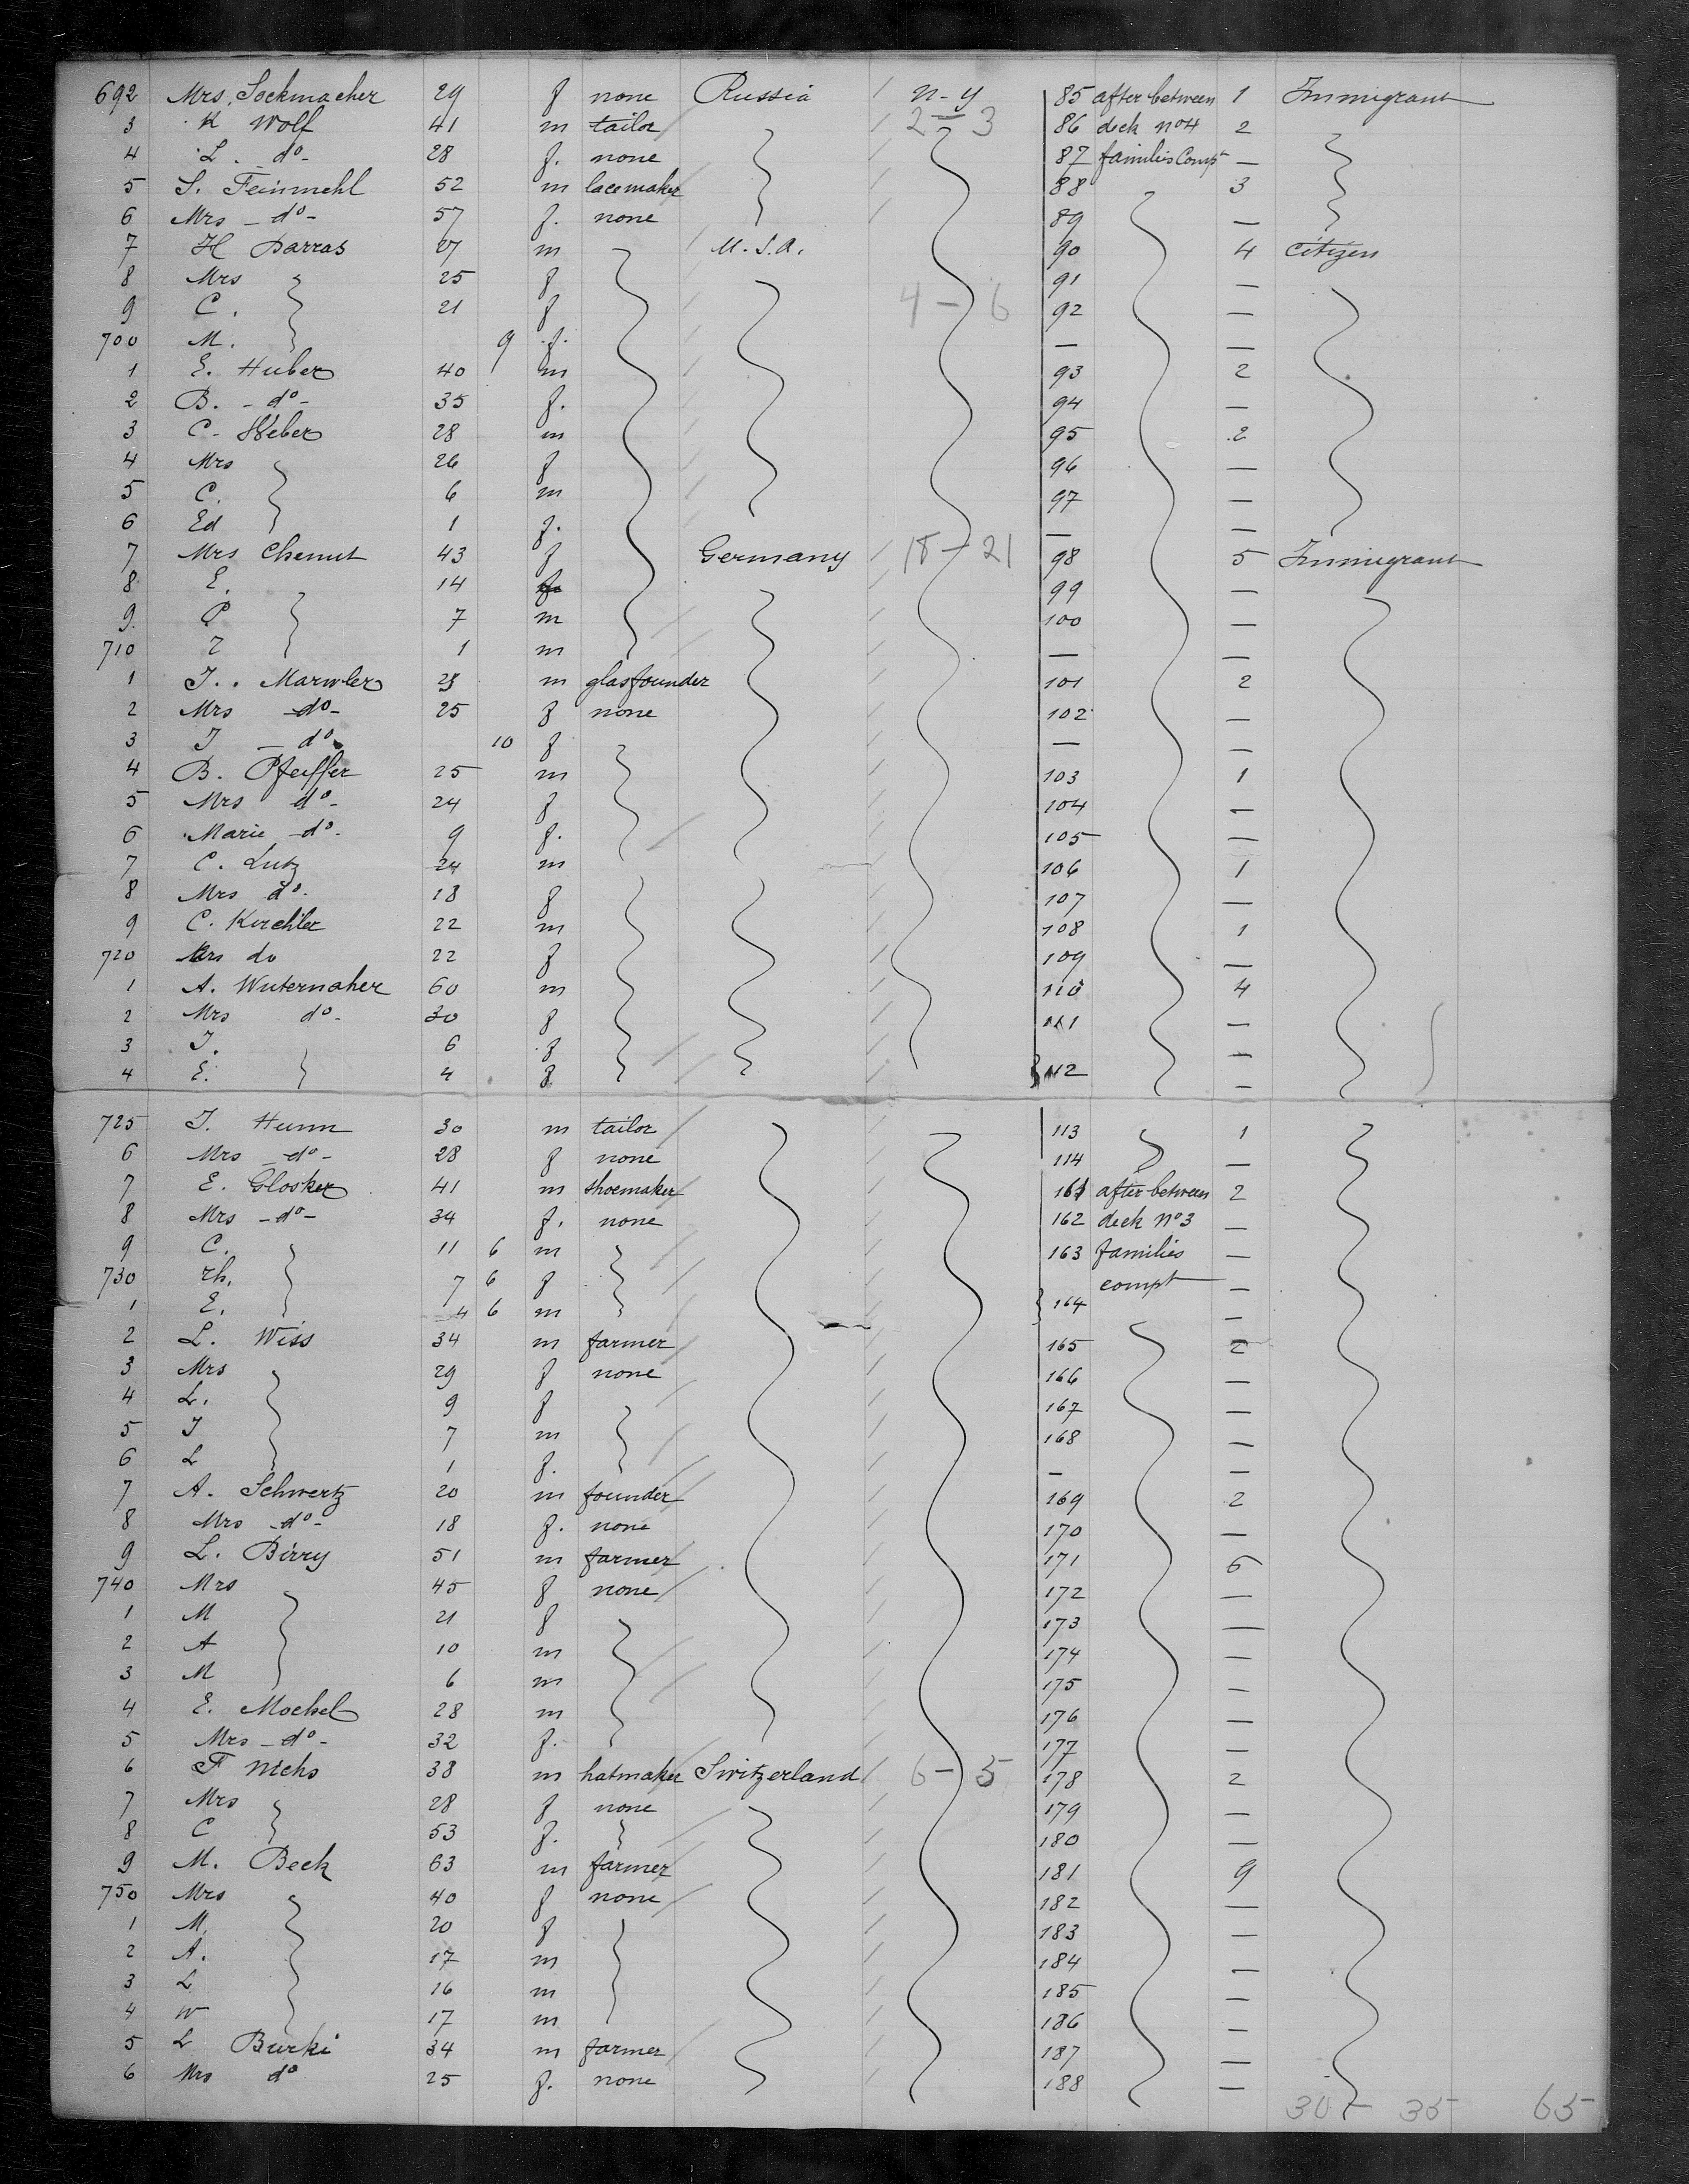 692 Mrs. Sockmacher 29 f none Russia / n-y 85 after between 1 Immigrant
3 K Wolf 41 m tailor / 2 - 3 86 deck no4 2
4 L. do- 28 f. none / 87 families Compt —
5 S. Feinmehl 52 m lacemaker / 88 3
6 Mrs - do- 57 f. none / 89 —
7 H Darras m / U.S.A. 90 4 Citizen
8 Mrs 25 f 91 —
9 C. 21 f 4 - 6 92 —
700 M. 9 f. — —
1 E. Huber 40 m 93 2
2 B. - do- 35 f. 94 —
3 C. Weber 28 m 95 2
4 Mrs 26 f 96 —
5 C. 6 m 97 —
6 Ed 1 f. — —
7 Mrs Chemut 43 f Germany / 18 - 21 98 5 Immigrant
8 E. 14 99 —
9. P 7 m 100 —
710 1 m — —
1 J. Marwler m glasfounder 101 2
2 Mrs do- 25 f none 102 —
3 J - do 10 f — —
4 B. Pfeiffer 25 m 103 1
5 Mrs do- 24 f 104 —
6 Marie - do- 9 f. 105 —
7 C. Lutz 24 m 106 1
8 Mrs do. 18 f 107 —
9 C. Kirchler 22 m 108 1
720 Mrs do 22 f 109 —
1 A. Wuternaher 60 m 110 4
2 Mrs do- 30 f 111 —
3 J. 6 f —
4 E. 4 f 112 —
725 J. Hunn 30 m tailor 113 1
6 Mrs - do- 28 f none 114 —
7 E. Glosker 41 m shoemaker 161 after between 2
8 Mrs - do- 34 f. none 162 deck no3 —
9 C. 11 6 m 163 families —
730 Th. 7 6 f compt —
1 E. 4 6 m 164 —
2 L. Wiss 34 m farmer 165 2
3 Mrs 29 f none 166 —
4 L. 9 f 167 —
5 J 7 m 168 —
6 L 1 f. — —
7 A. Schwertz 20 m founder 169 2
8 Mrs - do- 18 f. none 170 —
9 L. Birry 51 m farmer 171 5
740 Mrs 45 f none 172 —
1 M 21 f 173 —
2 A 10 m 174 —
3 M 6 m 175 —
4 E. Mochel 28 m 176 —
5 Mrs - do- 32 f. 177 —
6 F 38 m hatmaker Switzerland / 6 - 5 178 2
7 Mrs 28 f none 179 —
8 C 53 f. 180 —
9 M. Beck 63 m farmer 181 9
750 Mrs 40 f none 182 —
1 M. 20 f 183 —
2 A. 17 m 184 —
3 L 16 m 185 —
4 W 17 m 186 —
5 L Burki 34 m farmer 187 —
6 Mrs do 25 f. none 188 —
30 - 35 65